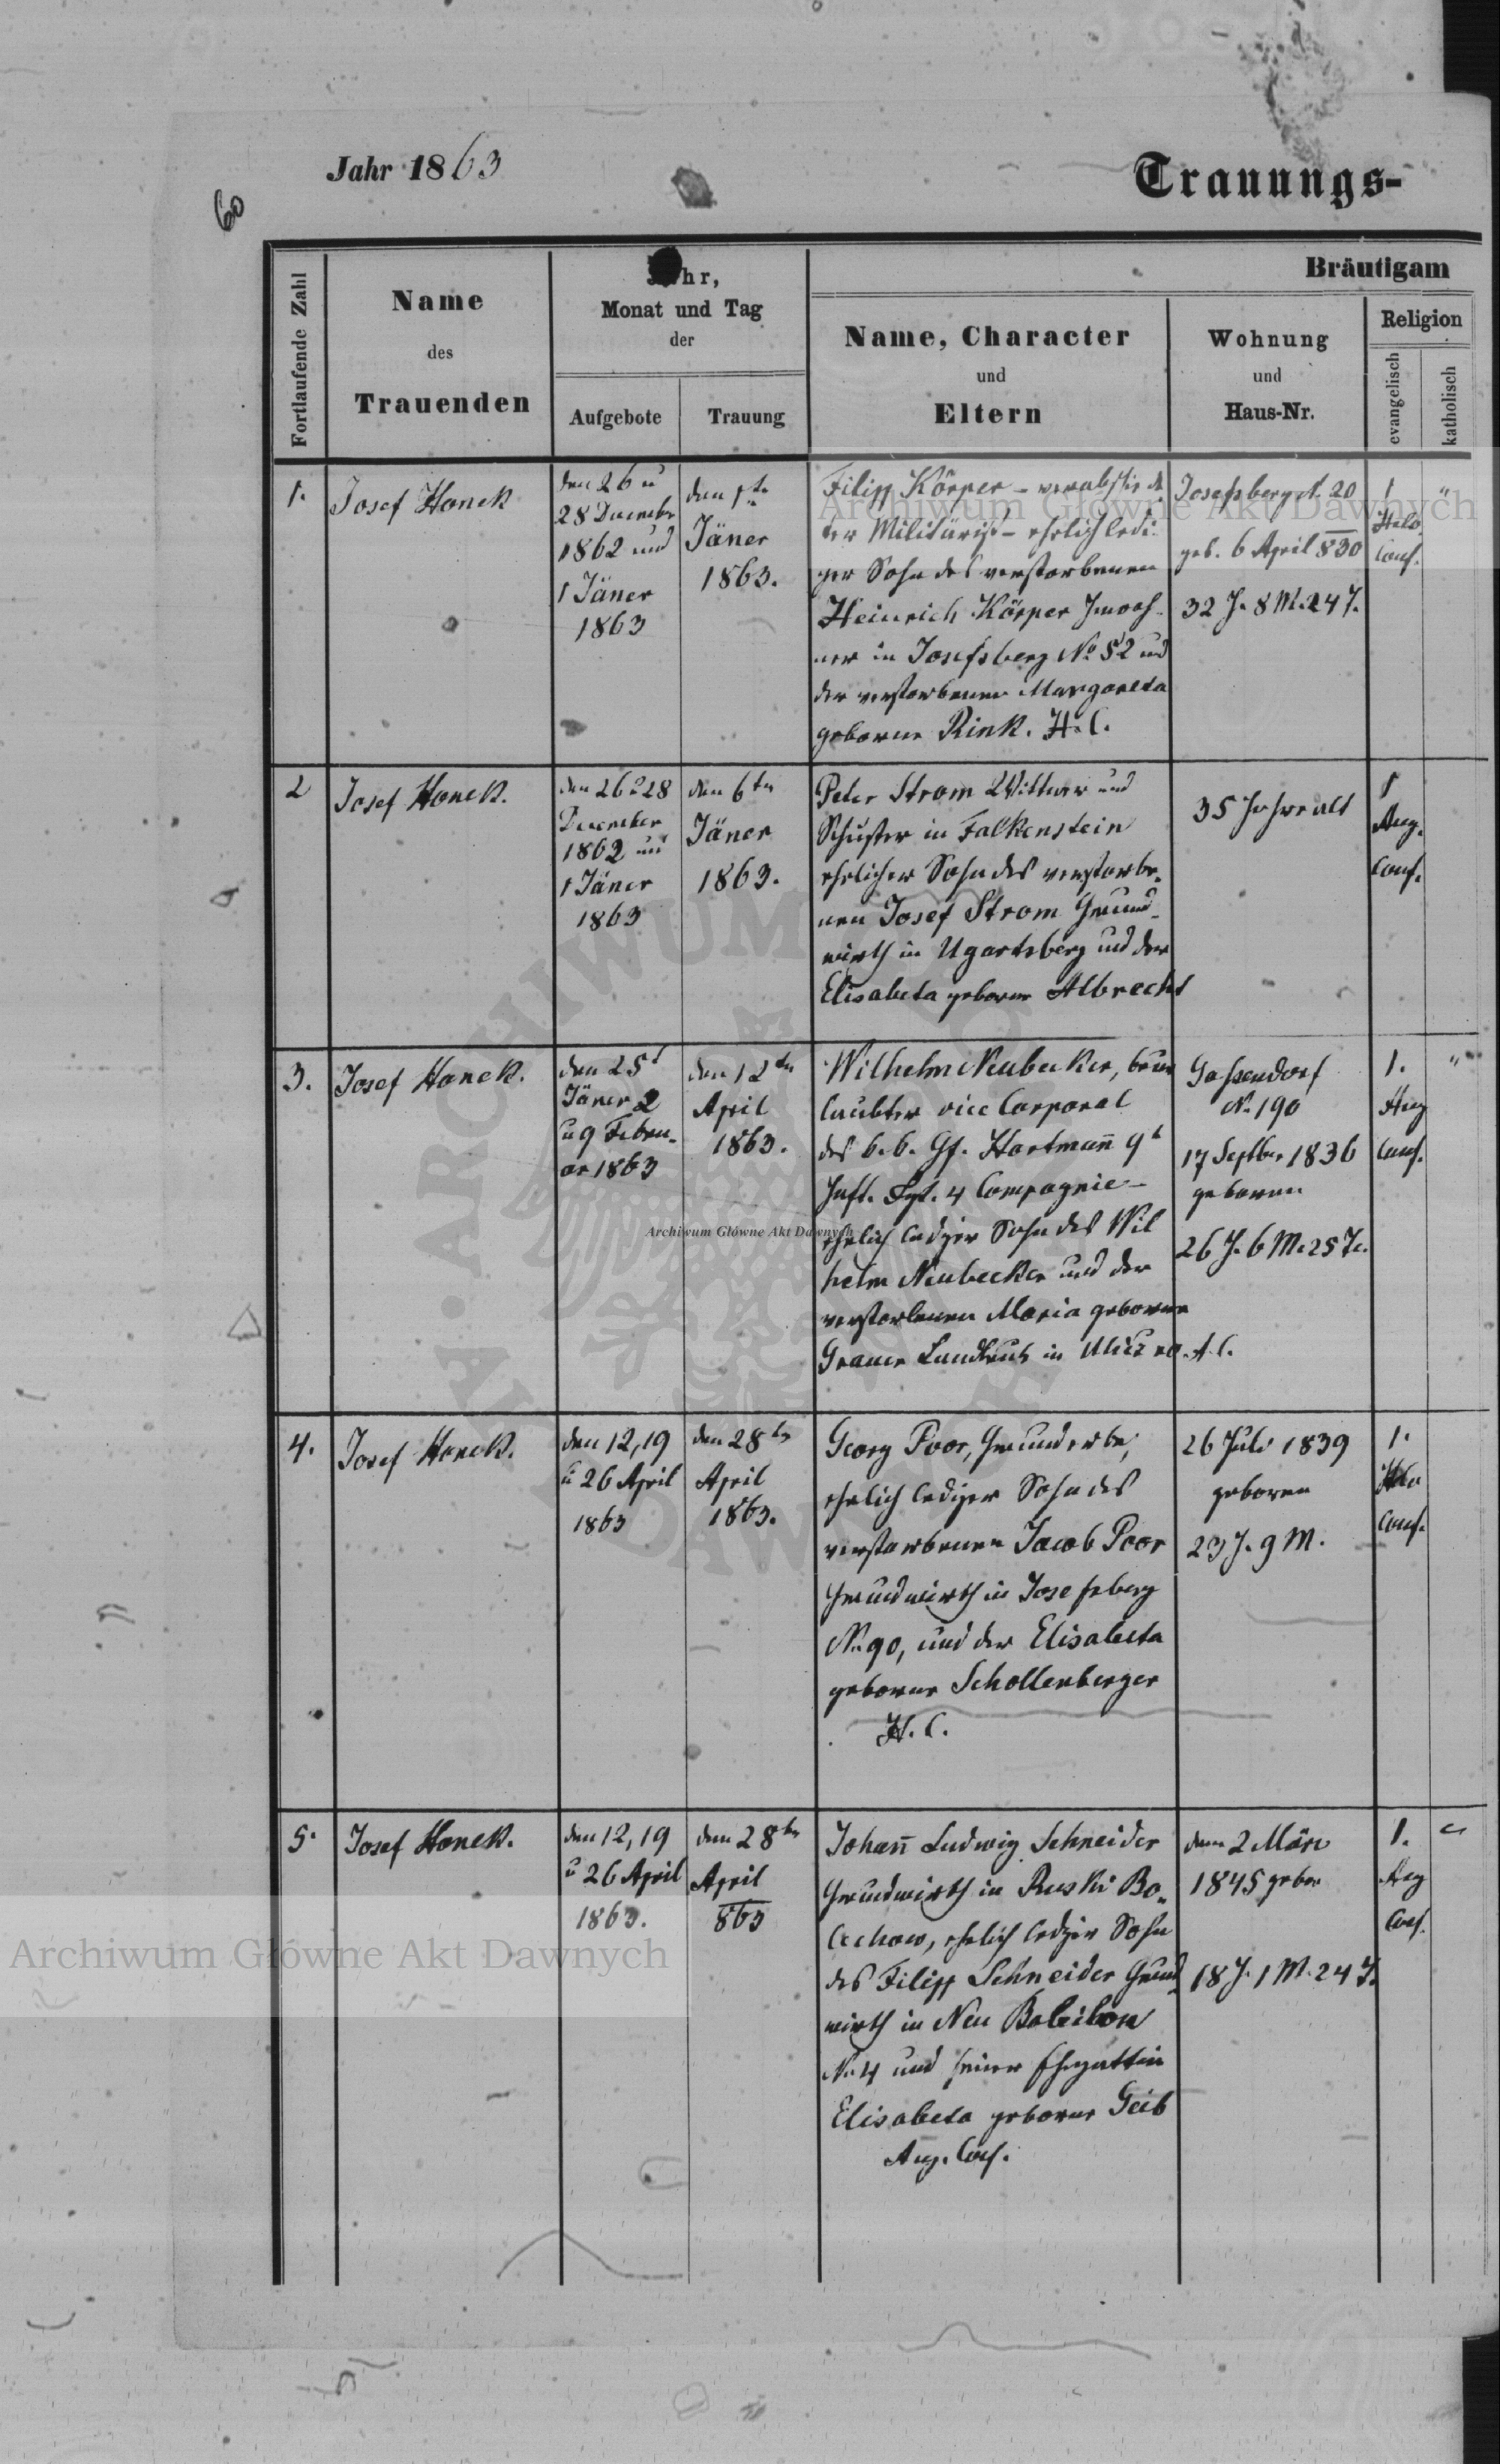 Jahr 1863
Trauungs-
60
Fortlaufende Zahl
Name
des
Trauenden
Jahr,
Monat und Tag
der
Aufgebote
Trauung
Bräutigam
Name, Character
und
Eltern
Wohnung
und
Haus-Nr.
Religion
evangelisch
katholisch
1.
Josef Honek
den 26 u
28 December
1862 und
1 Jäner
1863
den 1te
Jäner
1863.
Filipp Körper – verabschiede
ter Militärist – ehelich ledi
ger Sohn des verstorbenen
Heinrich Körper Inwoh
ner in Josefsberg No 52 und
der verstorbenen Margareta
geborne Rink. H. C.
Josefsberg N. 20
geb. 6 April 830
32 J. 8 M. 24 T.
1
Helv.
Conf.
"
2
Josef Honek.
den 26 u 28
December
1862 und
1 Jäner
1863
den 6ten
Jäner
1863.
Peter Strom Wittwer und
Schuster in Falkenstein
ehelicher Sohn des verstorbe-
nen Josef Strom Grund-
wirth in Ugartsberg und der
Elisabeta geborne Albrecht
35 Jahre alt
1
Aug.
Conf.
3.
Josef Honek.
den 25t
Jäner 2
u 9 Febru-
ar 1863
den 12ten
April
1863.
Wilhelm Neubecker, beur
laubter vice Corporal
des k. k. Gf. Hartmann 9t
Inft. Rgt. 4 Compagnie –
ehelich lediger Sohn des Wil
helm Neubecker und der
verstorbenen Maria geborne
Grauer Landleute in Uliczno. A. C.
Gassendorf
No 190
17 Septber 1836
geboren
26 J. 6 M. 25 T.
1.
Aug
Conf.
"
4.
Josef Honek.
den 12, 19
u 26 April
1863
den 28ten
April
1863.
Georg Poor, Grunderbe,
ehelich lediger Sohn des
verstorbenen Jacob Poor
Grundwirth in Josefsberg
No 90, und der Elisabeta
geborne Schollenberger
H. C.
26 Juli 1839
geboren
23 J. 9 M.
1.
Helv
Conf.
5.
Josef Honek.
den 12, 19
u 26 April
1863.
den 28ten
April
863
Johann Ludwig Schneider
Grundwirth in Ruski Bo-
lechow, ehelich lediger Sohn
des Filipp Schneider Grund
wirth in Neu Babilon
No 4 und seiner Ehegattin
Elisabeta geborne Geib
Aug. Conf.
den 2 März
1845 gebor
18 J. 1 M. 24 T.
1.
Aug
Conf.
"
Archiwum Główne Akt Dawnych
Archiwum Główne Akt Dawnych
Archiwum Główne Akt Dawnych